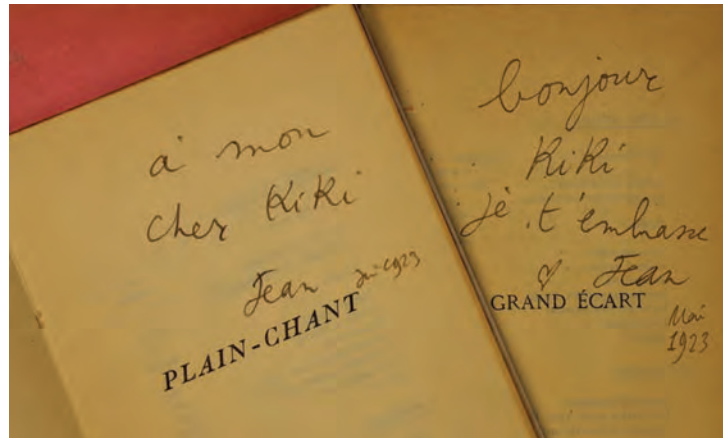 à mon
cher Kiki
Jean Juin 1923
PLAIN-CHANT
bonjour
Kiki
je t'embrasse
Jean
GRAND ÉCART
Mai
1923